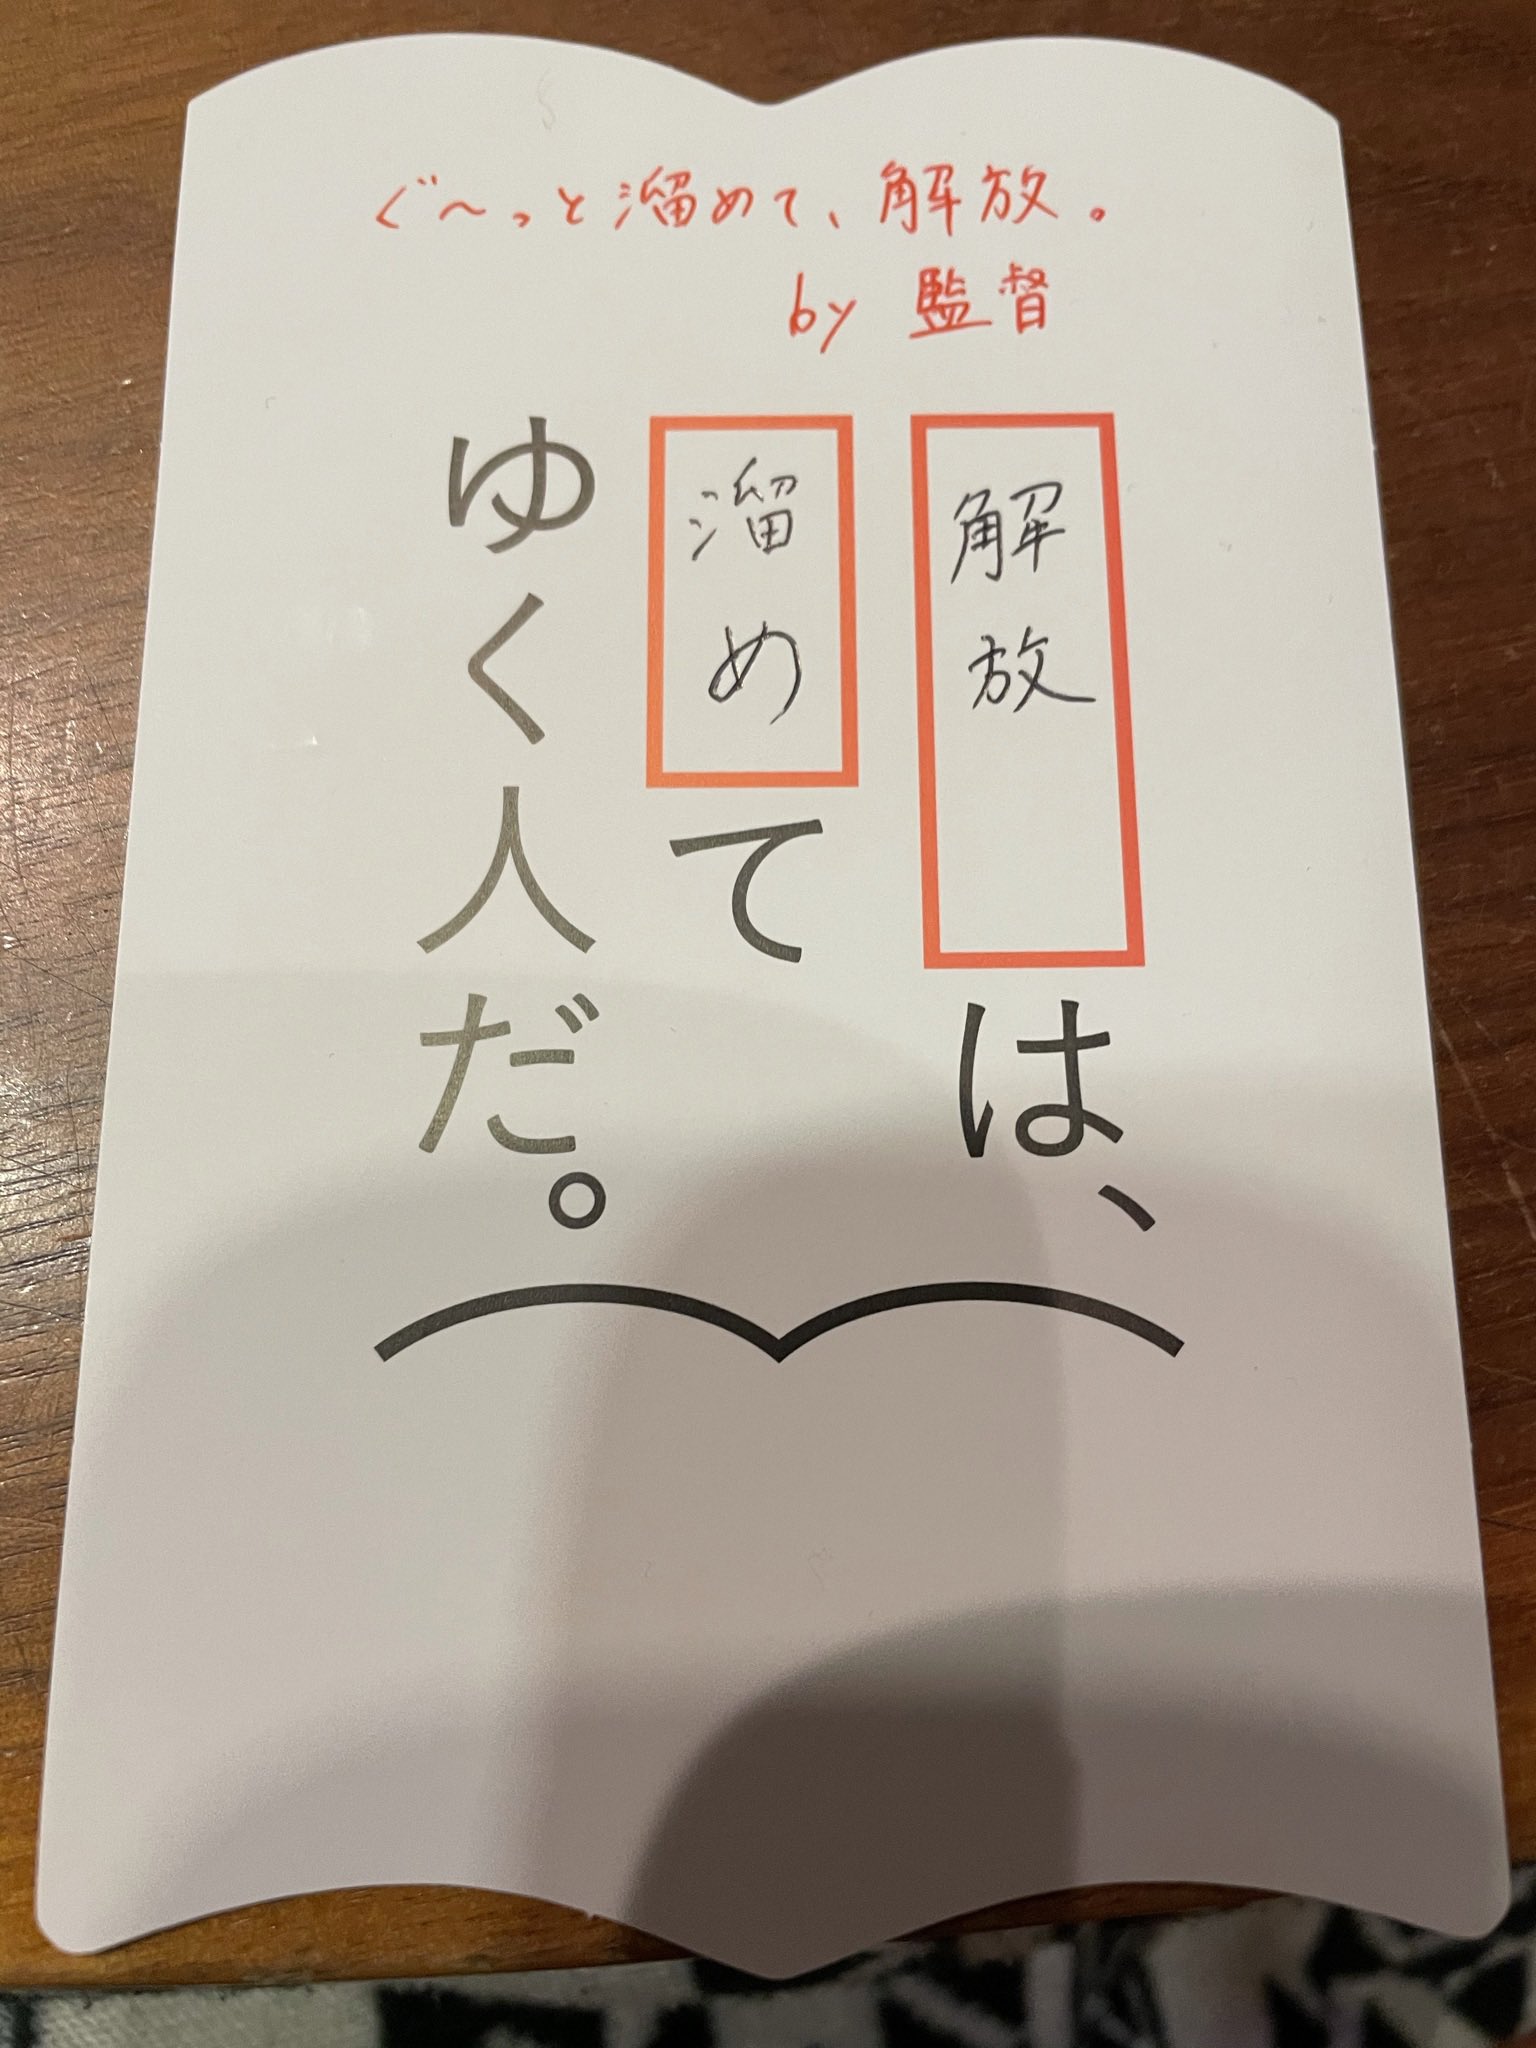 ぐ〜っと溜めて、解放。
by 監督
解放は、
溜めて
ゆく人だ。